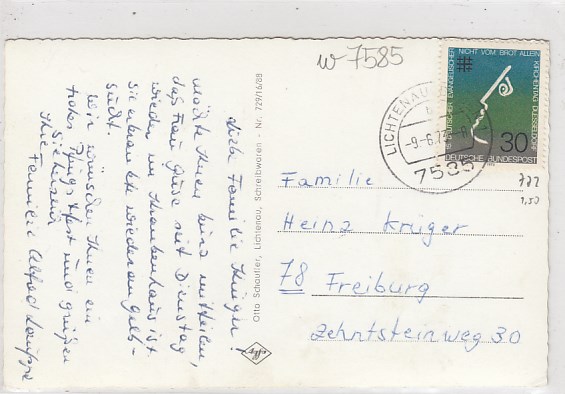 w 7585
Liebe Familie Krüger!
möchte Ihnen kurz mitteilen,
das Frau Guse seit Dienstag
wieder im Krankenhaus ist.
Sie erkrankte wieder an Gelb-
sucht.
Wir wünschen Ihnen ein
frohes Pfingstfest und grüßen
Sie herzlich
Ihre Familie Alfred
Otto Schautler, Lichtenau, Schreibwaren - Nr. 729/16/88
LICHTENAU
-9.-6.73-8
7585
NICHT VOM BROT ALLEIN
15. DEUTSCHER EVANGELISCHER KIRCHENTAG DÜSSELDORF
30
DEUTSCHE BUNDESPOST
772
1,50
Familie
Heinz Krüger
78 Freiburg
Zehntsteinweg 30